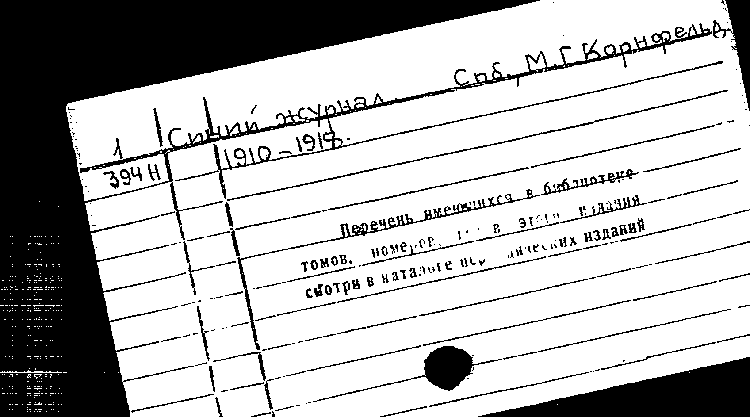 Синий журнал. Спб., М.Г Корнфельд,
1
1910-1918.
394 Н
Перечень имеющихся в библиотеке
томов, номеров, в этого издания
смотри в каталоге изданий